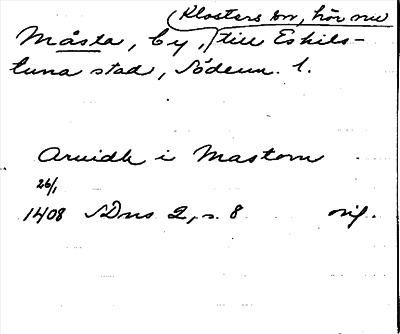 (Klosters sn, hör nu
Måsta, by, till Eskils-
tuna stad, Söderm. l.
Arvidh i Mastom
26/1
1408 SDns 2, s. 8 orig.